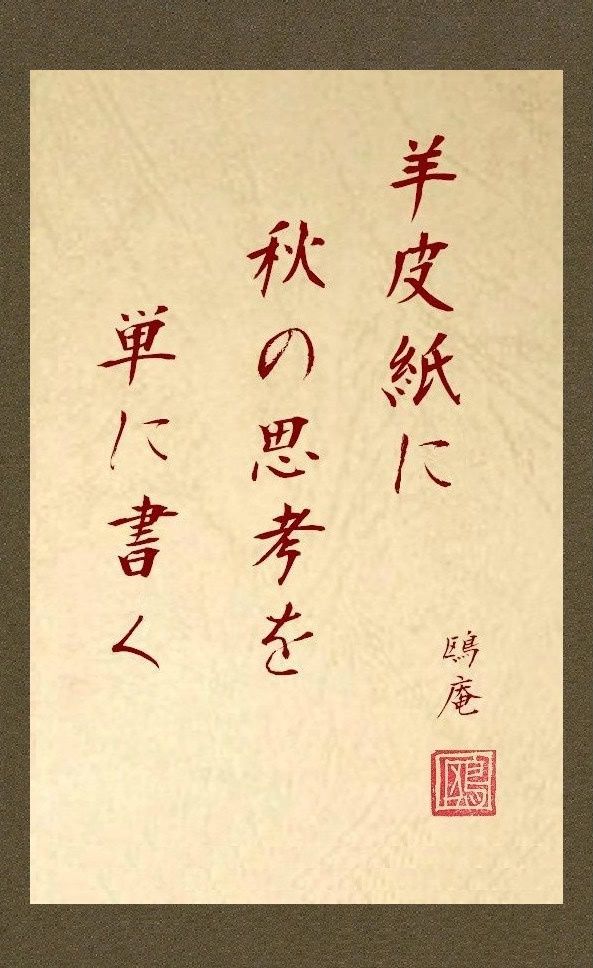 羊皮紙に
秋の思考を
単に書く
鴎庵
鴎